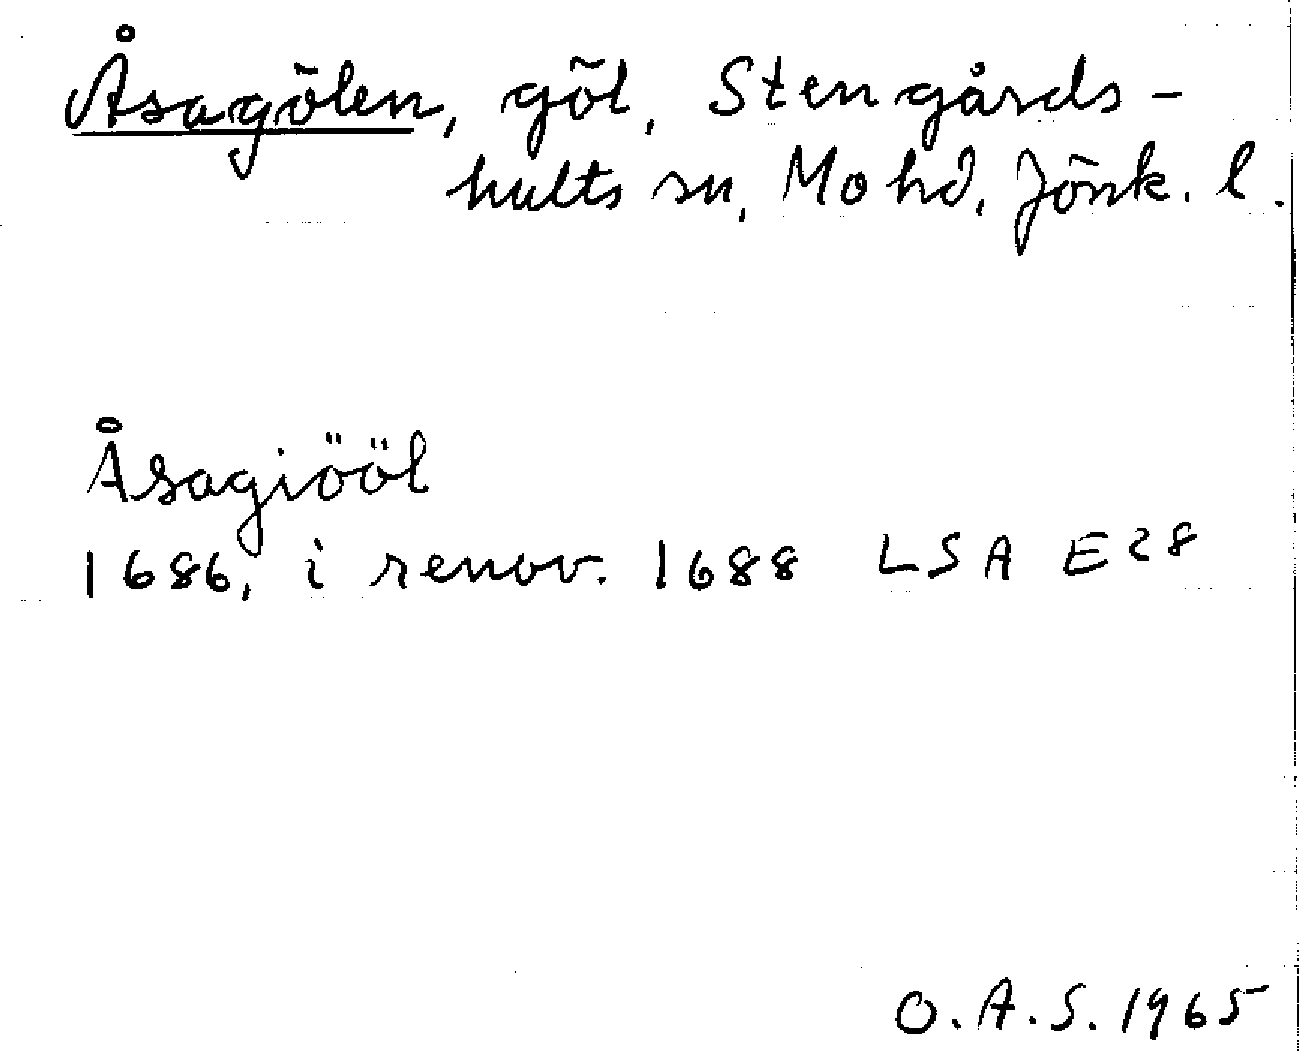 Åsagölen, göl, Stengårds-
hults sn, Mo hd, Jönk. l.
Åsagiööl
1686, i renov. 1688 LSA E28
O.A.S. 1965